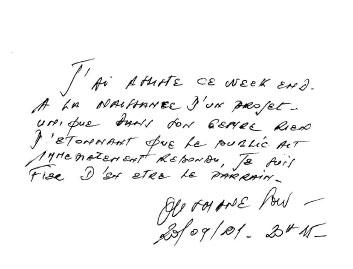 J'ai assisté ce week end.
A la naissance d'un projet-
unique dans son genre rien
d'étonnant que le public ait
immédiatement répondu, je suis
fier d'en être le parrain-
20/09/